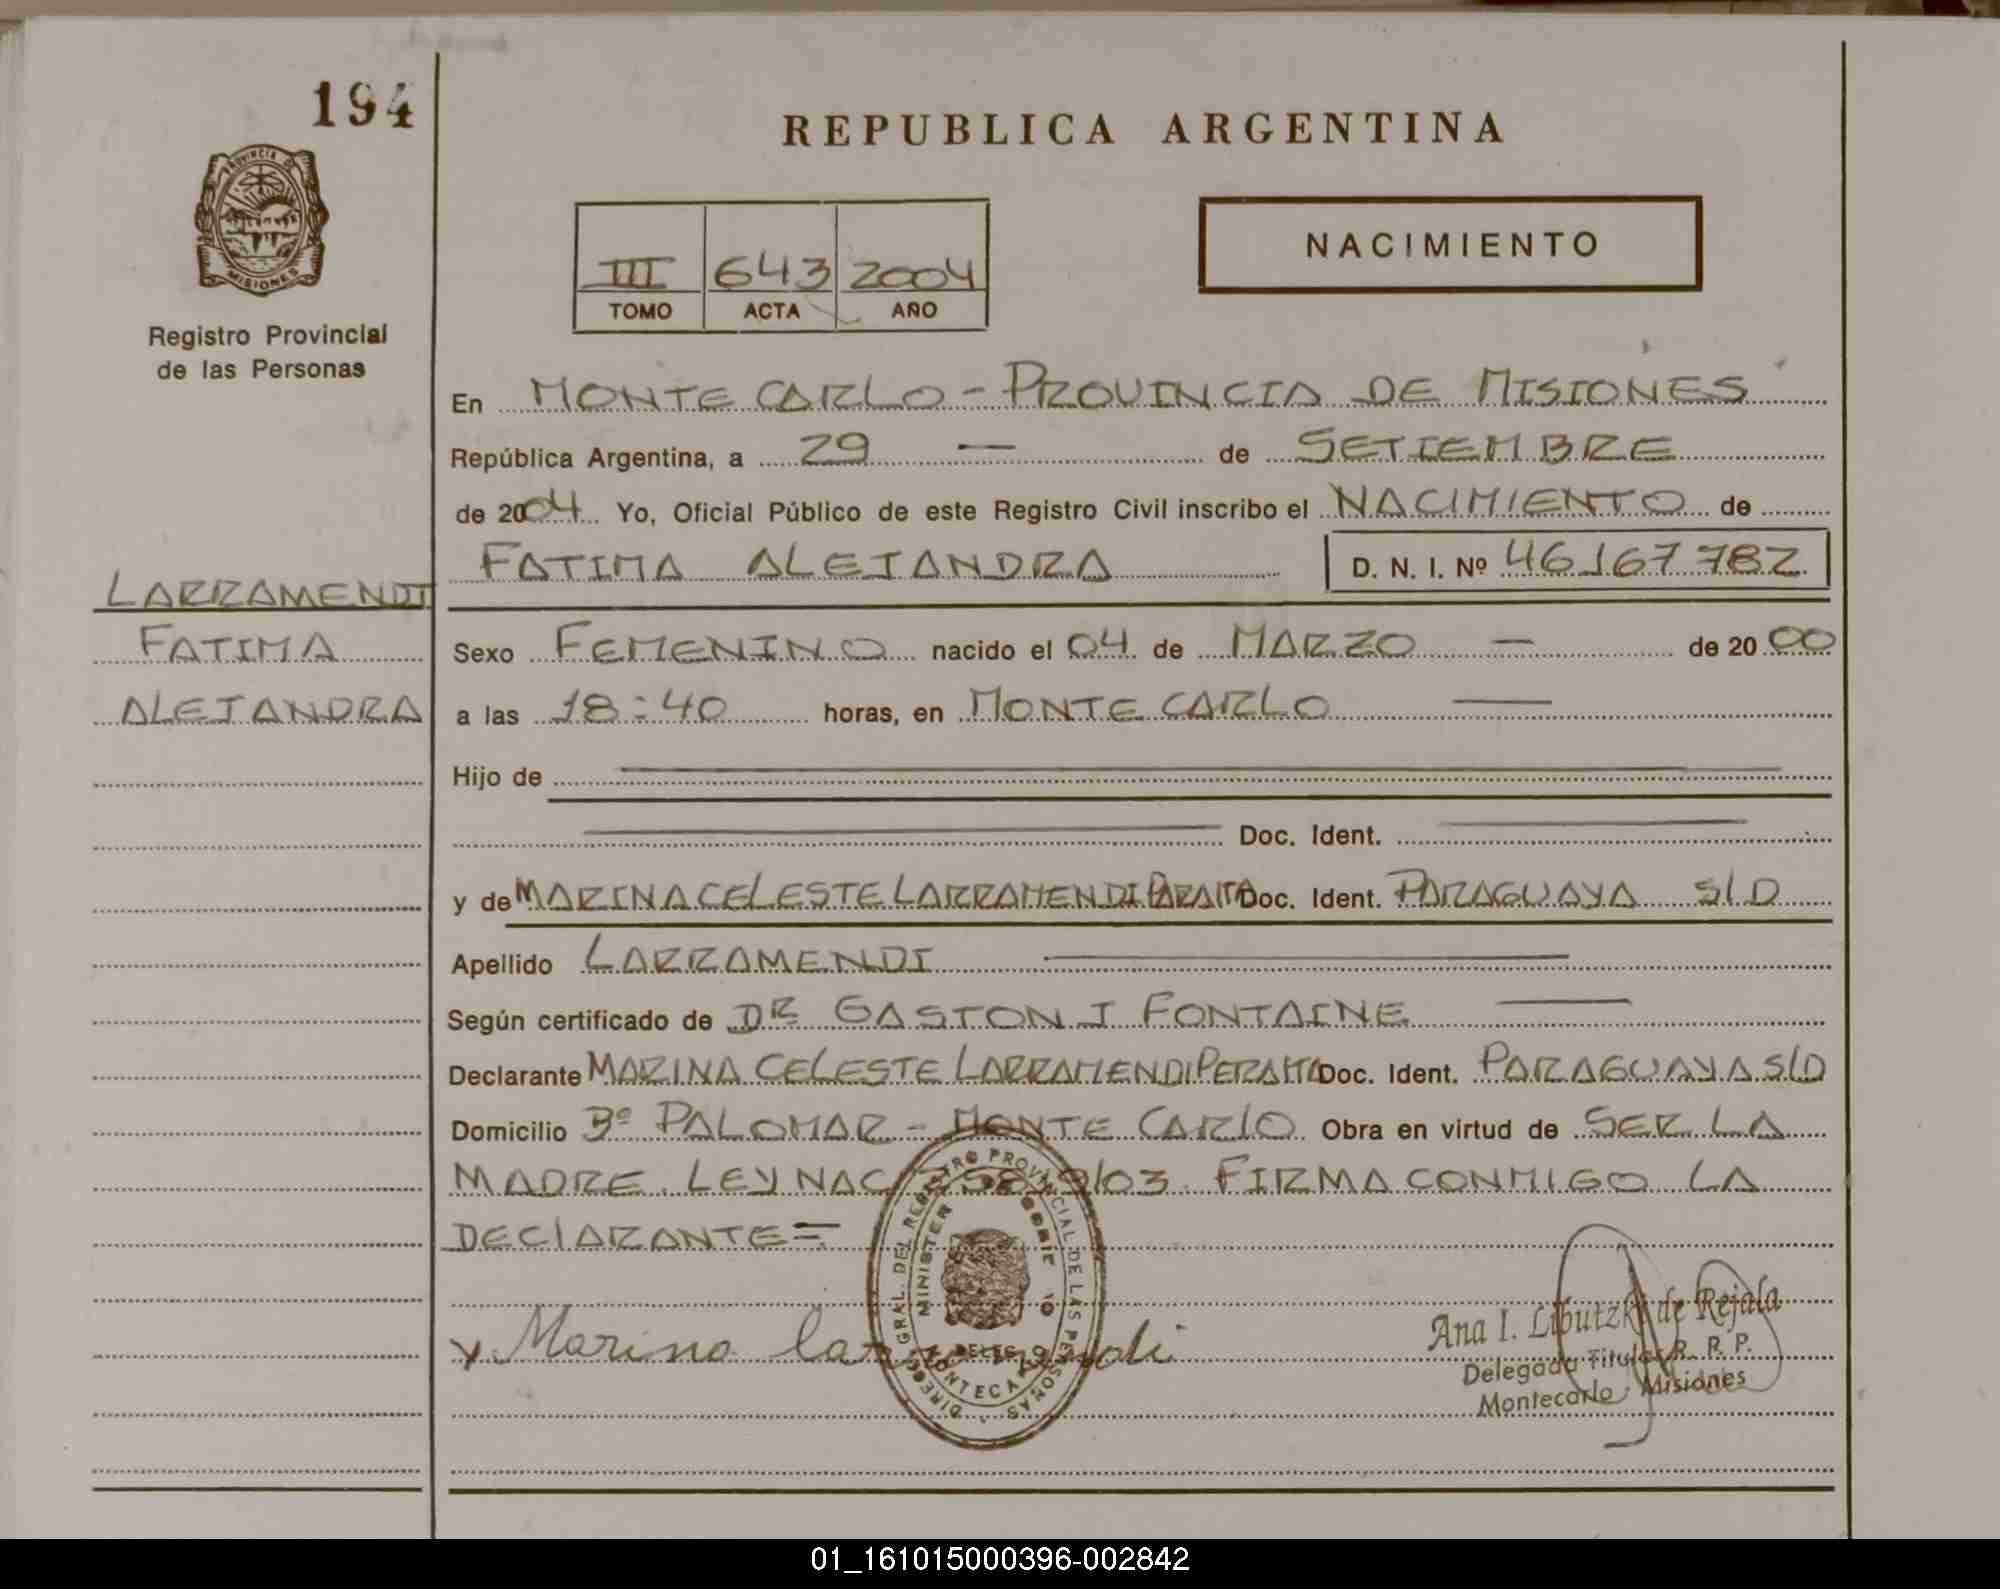 194
PROVINCIA DE
MISIONES
Registro Provincial
de las Personas
REPUBLICA ARGENTINA
III 643 2004
TOMO ACTA AÑO
NACIMIENTO
En MONTE CARLO - PROVINCIA DE MISIONES
República Argentina, a 29 — de SETIEMBRE
de 2004 Yo, Oficial Público de este Registro Civil inscribo el NACIMIENTO de
FATIMA ALEJANDRA D. N. I. Nº 46167782
LARRAMENDI
FATIMA
ALEJANDRA
Sexo FEMENINO nacido el 04 de MARZO — de 2000
a las 18:40 horas, en MONTE CARLO —
Hijo de
Doc. Ident.
y de MARINA CELESTE LARRAMENDI Doc. Ident. PARAGUAYA S/D
Apellido LARRAMENDI
Según certificado de DR GASTON I FONTAINE
Declarante MARINA CELESTE LARRAMENDI PERALTA Doc. Ident. PARAGUAYA S/D
Domicilio Bº PALOMAR - MONTE CARLO Obra en virtud de SER LA
MADRE. LEY NAC 25819/03. FIRMA CONMIGO LA
DECLARANTE=
DIREC. GRAL. DEL REGISTRO PROVINCIAL DE LAS PERSONAS
Marina Larramendi
Ana I. Libutzki de Rejala
Delegada Titular R. R. P.
Montecarlo - Misiones
01_161015000396-002842